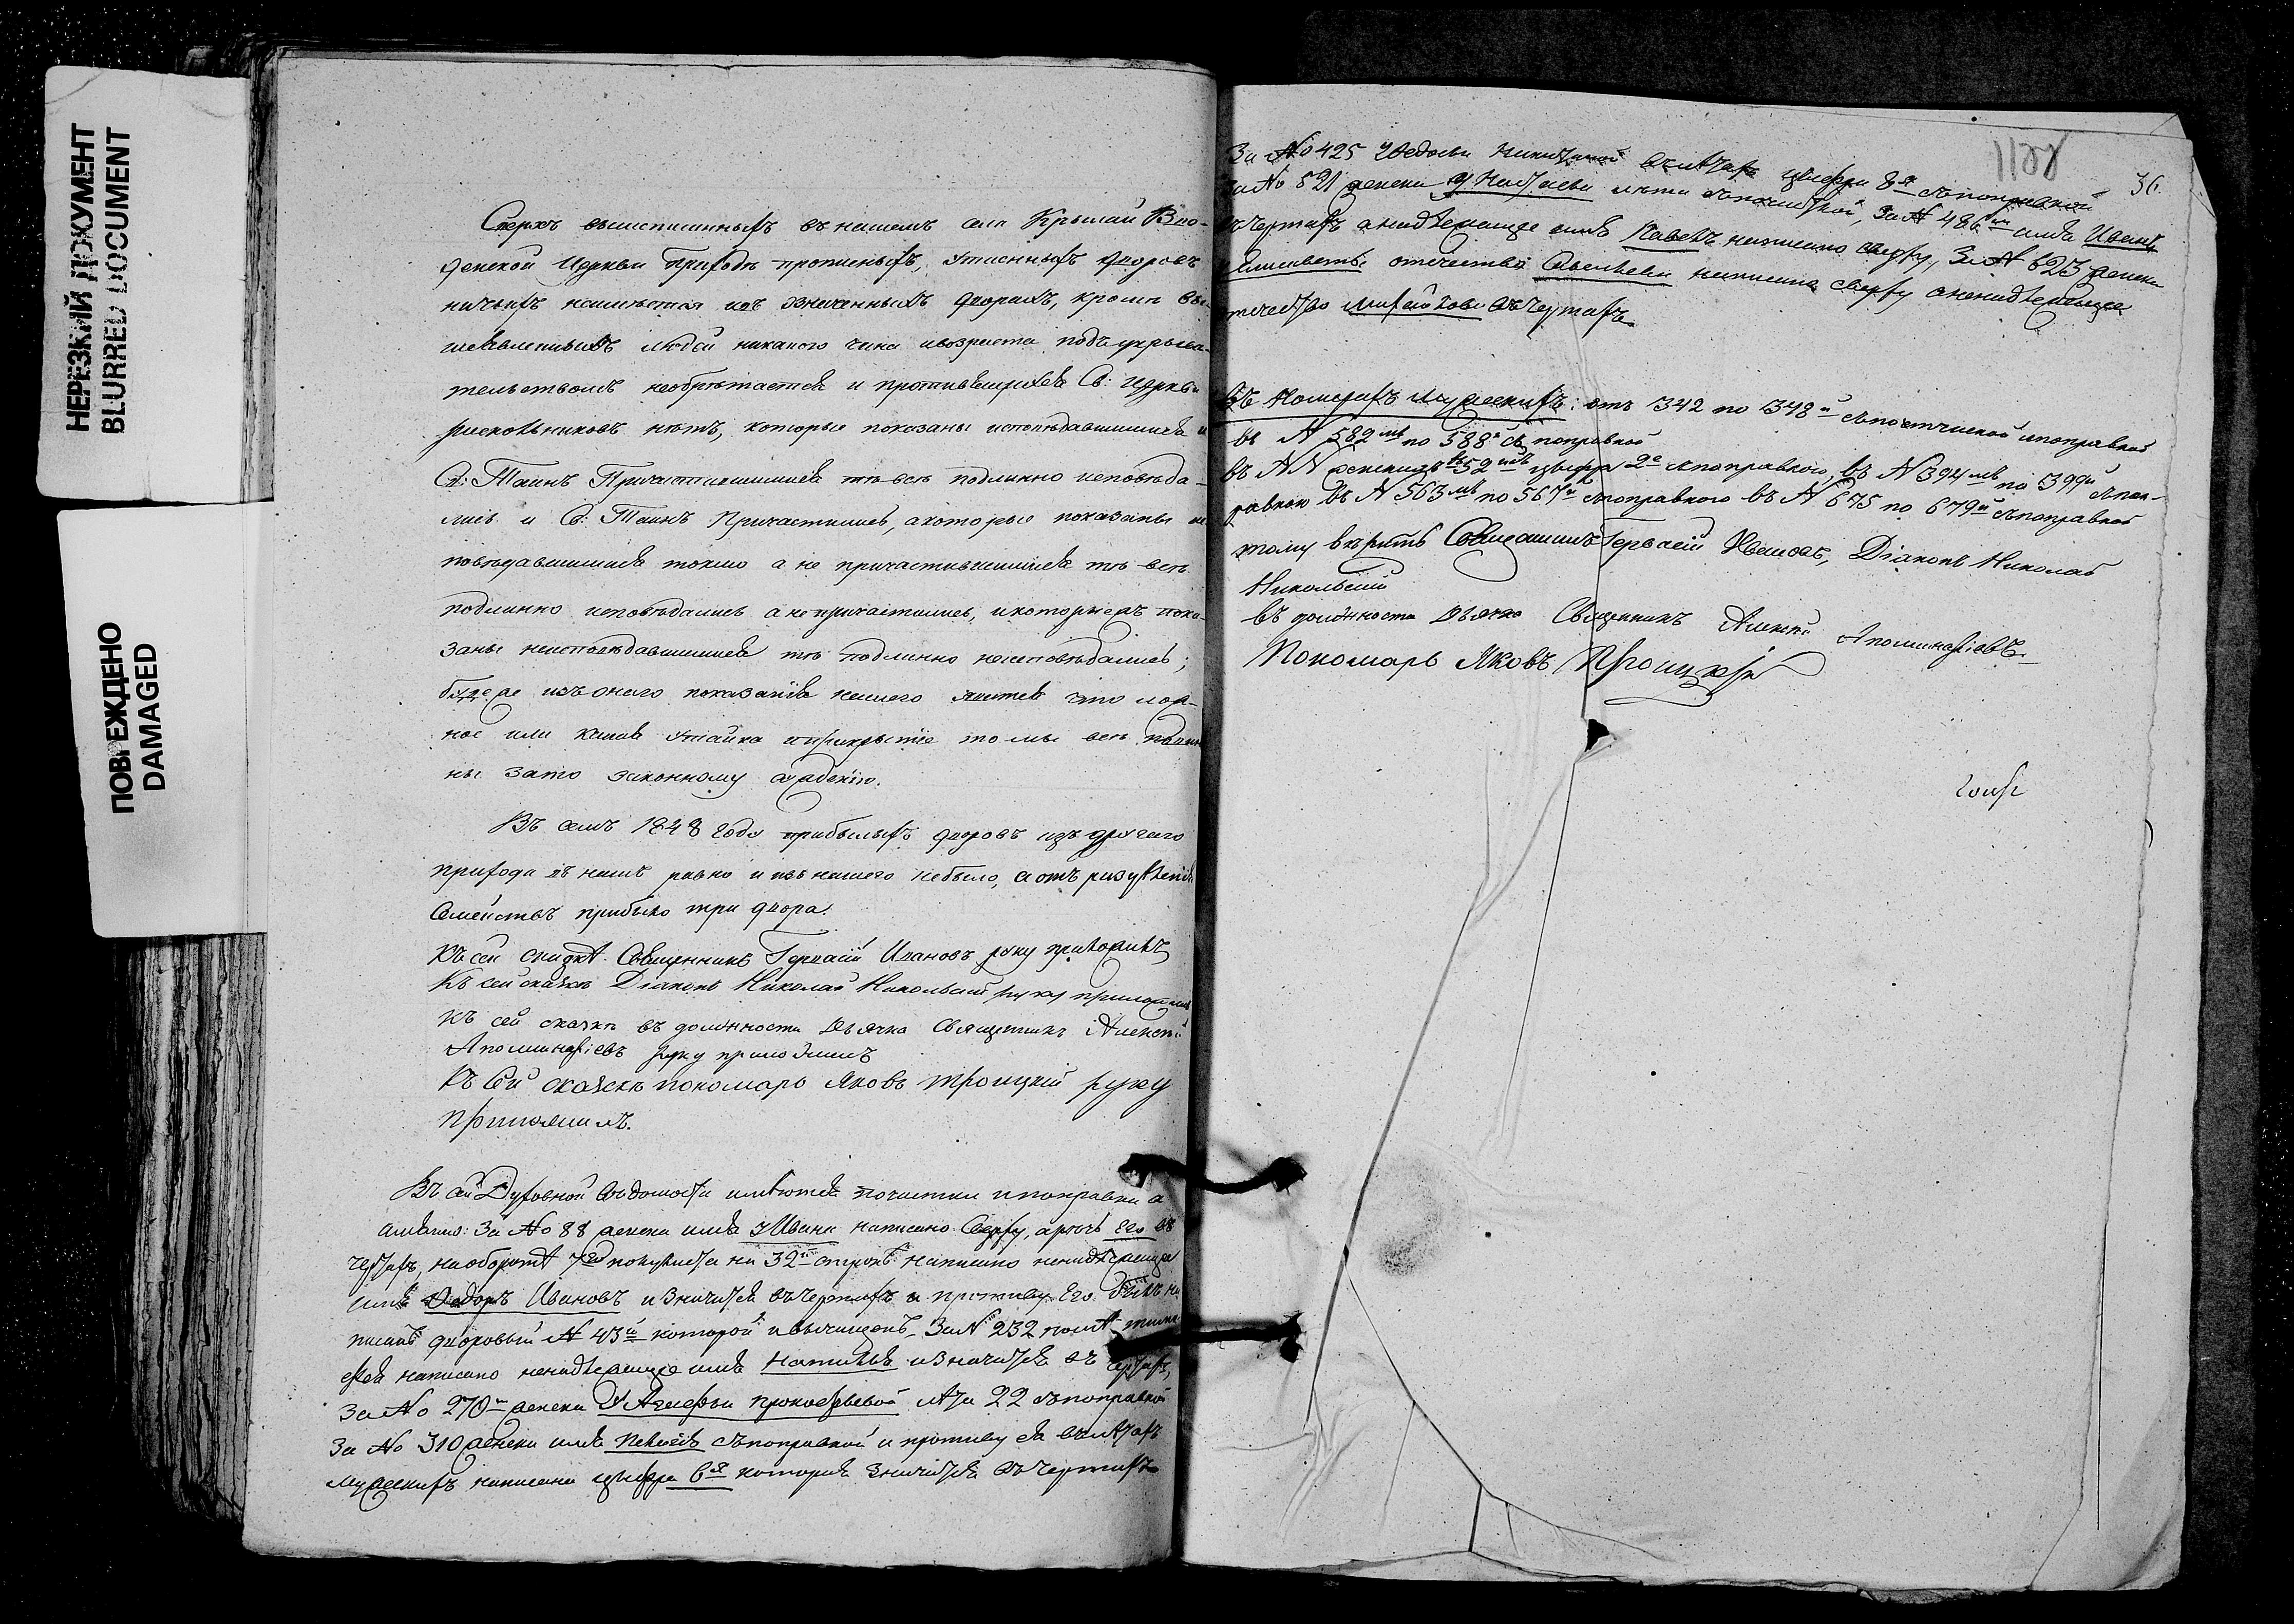 НЕРЕЗКИЙ ДОКУМЕНТ
BLURRED DOCUMENT
ПОВРЕЖДЕНО
DAMAGED
Сверхъ вышеписанныхъ въ нашемъ селе Крылаи Вво-
денской Церкви Приходѣ прописныхъ, утаенныхъ дворовъ
кромѣ вы-
шеявленныхъ людей никакого чина и возраста подъ укрыва-
тельствомъ необрѣтается и противящихся Св: Церкви
раскольниковъ нѣтъ, которые показаны исповѣдавшимися и
Св: Таинъ Причастившимися тѣ всѣ подлинно исповѣда-
лись и Св: Таинъ Причастились, а которые показаны ис
повѣдавшимися токмо а не причастившимися тѣ всѣ
подлинно исповѣдались а не причастились, и которыежъ пока-
заны неисповѣдавшимися тѣ подлинно неисповѣдались;
буде же изъ оного показанія нашего явится что лож-
ное или какая утайка и прикрытіе то мы всѣ повин
ны зато законному сужденію.
Въ семъ 1848 году прибылыхъ дворовъ изъ другаго
прихода въ нашъ равно и изъ нашего небыло, а отъ раздѣленія
Семействъ прибыло три двора.
Къ сей сказкѣ Священникъ Гервасій Ивановъ руку приложилъ
Къ сей сказкѣ Діаконъ Николай Никольскій руку приложилъ
Къ сей сказкѣ въ должности Дьячка Священникъ Алексѣй
Аполинаріевъ руку приложилъ
Къ сей сказкѣ пономарь Яковъ Троицкій руку
приложилъ.
Въ сей Духовной вѣдомости имѣются почистки и поправки а
именно: За No 88 женска имя Иванъ написано сверху, а рѣчь Его въ
чертахъ, на оборотѣ полулиста на 32й строкѣ написано ненадлежаще
имя Ѳедоръ Ивановъ и значится въ чертахъ и противу Его былъ на
писанъ дворовый N 43й которой и вычищенъ, За N 232
написано ненадлежаще имя Наталья и значится въ чертахъ,
За No 270й женска у Агафьи Прокофьевой лѣта 22 съ поправкой
За No 310 женска имя Пелагія съ поправкой и противу ея въ лѣтахъ
мужескихъ написана цыфра 6я которая значится въ чертахъ
1128
36
За No 425 у Ѳедосьи Никитиной въ лѣтахъ цыфра 8я съ поправкой
За No 521 женска у Настасьи лѣта съ почисткой, За N 486й имя Иванъ
въ чертахъ а надлежаще имя Павелъ написано сверху, За N 623 женска
Елисаветы отечество Савельева написано сверху а ненадлежаще
отечество Михайлова въ чертахъ.
Въ Номерахъ мужескихъ: отъ 342 по 348й съ почисткой и поправкой
въ N 582мъ по 588й съ поправкой
въ NN женскихъ 52мъ цыфра 2я съ поправкою, въ N 394мъ по 399й съ поп-
равкою въ N 563мъ по 567й съ поправкою въ N 675 по 679й съ поправкой
тому вѣрить Священникъ Гервасій Ивановъ, Діаконъ Николай
Никольскій
въ должности Дьячка Священникъ Алексѣй Аполинаріевъ.
Пономарь Яковъ Троицкій